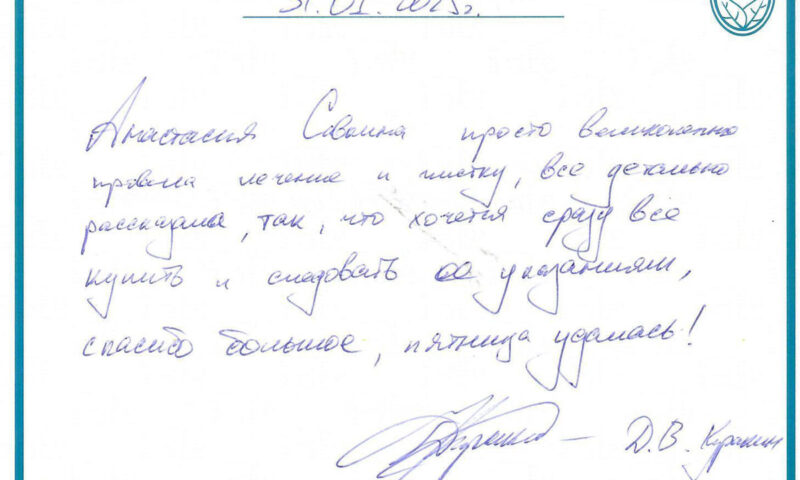 31.01.2025г.
Анастасия Савина просто великолепно
провела лечение и чистку, все детально
рассказала, так, что хочется сразу все
купить и следовать ее указаниям,
спасибо большое, пятница удалась!
— Д.В. Куракин